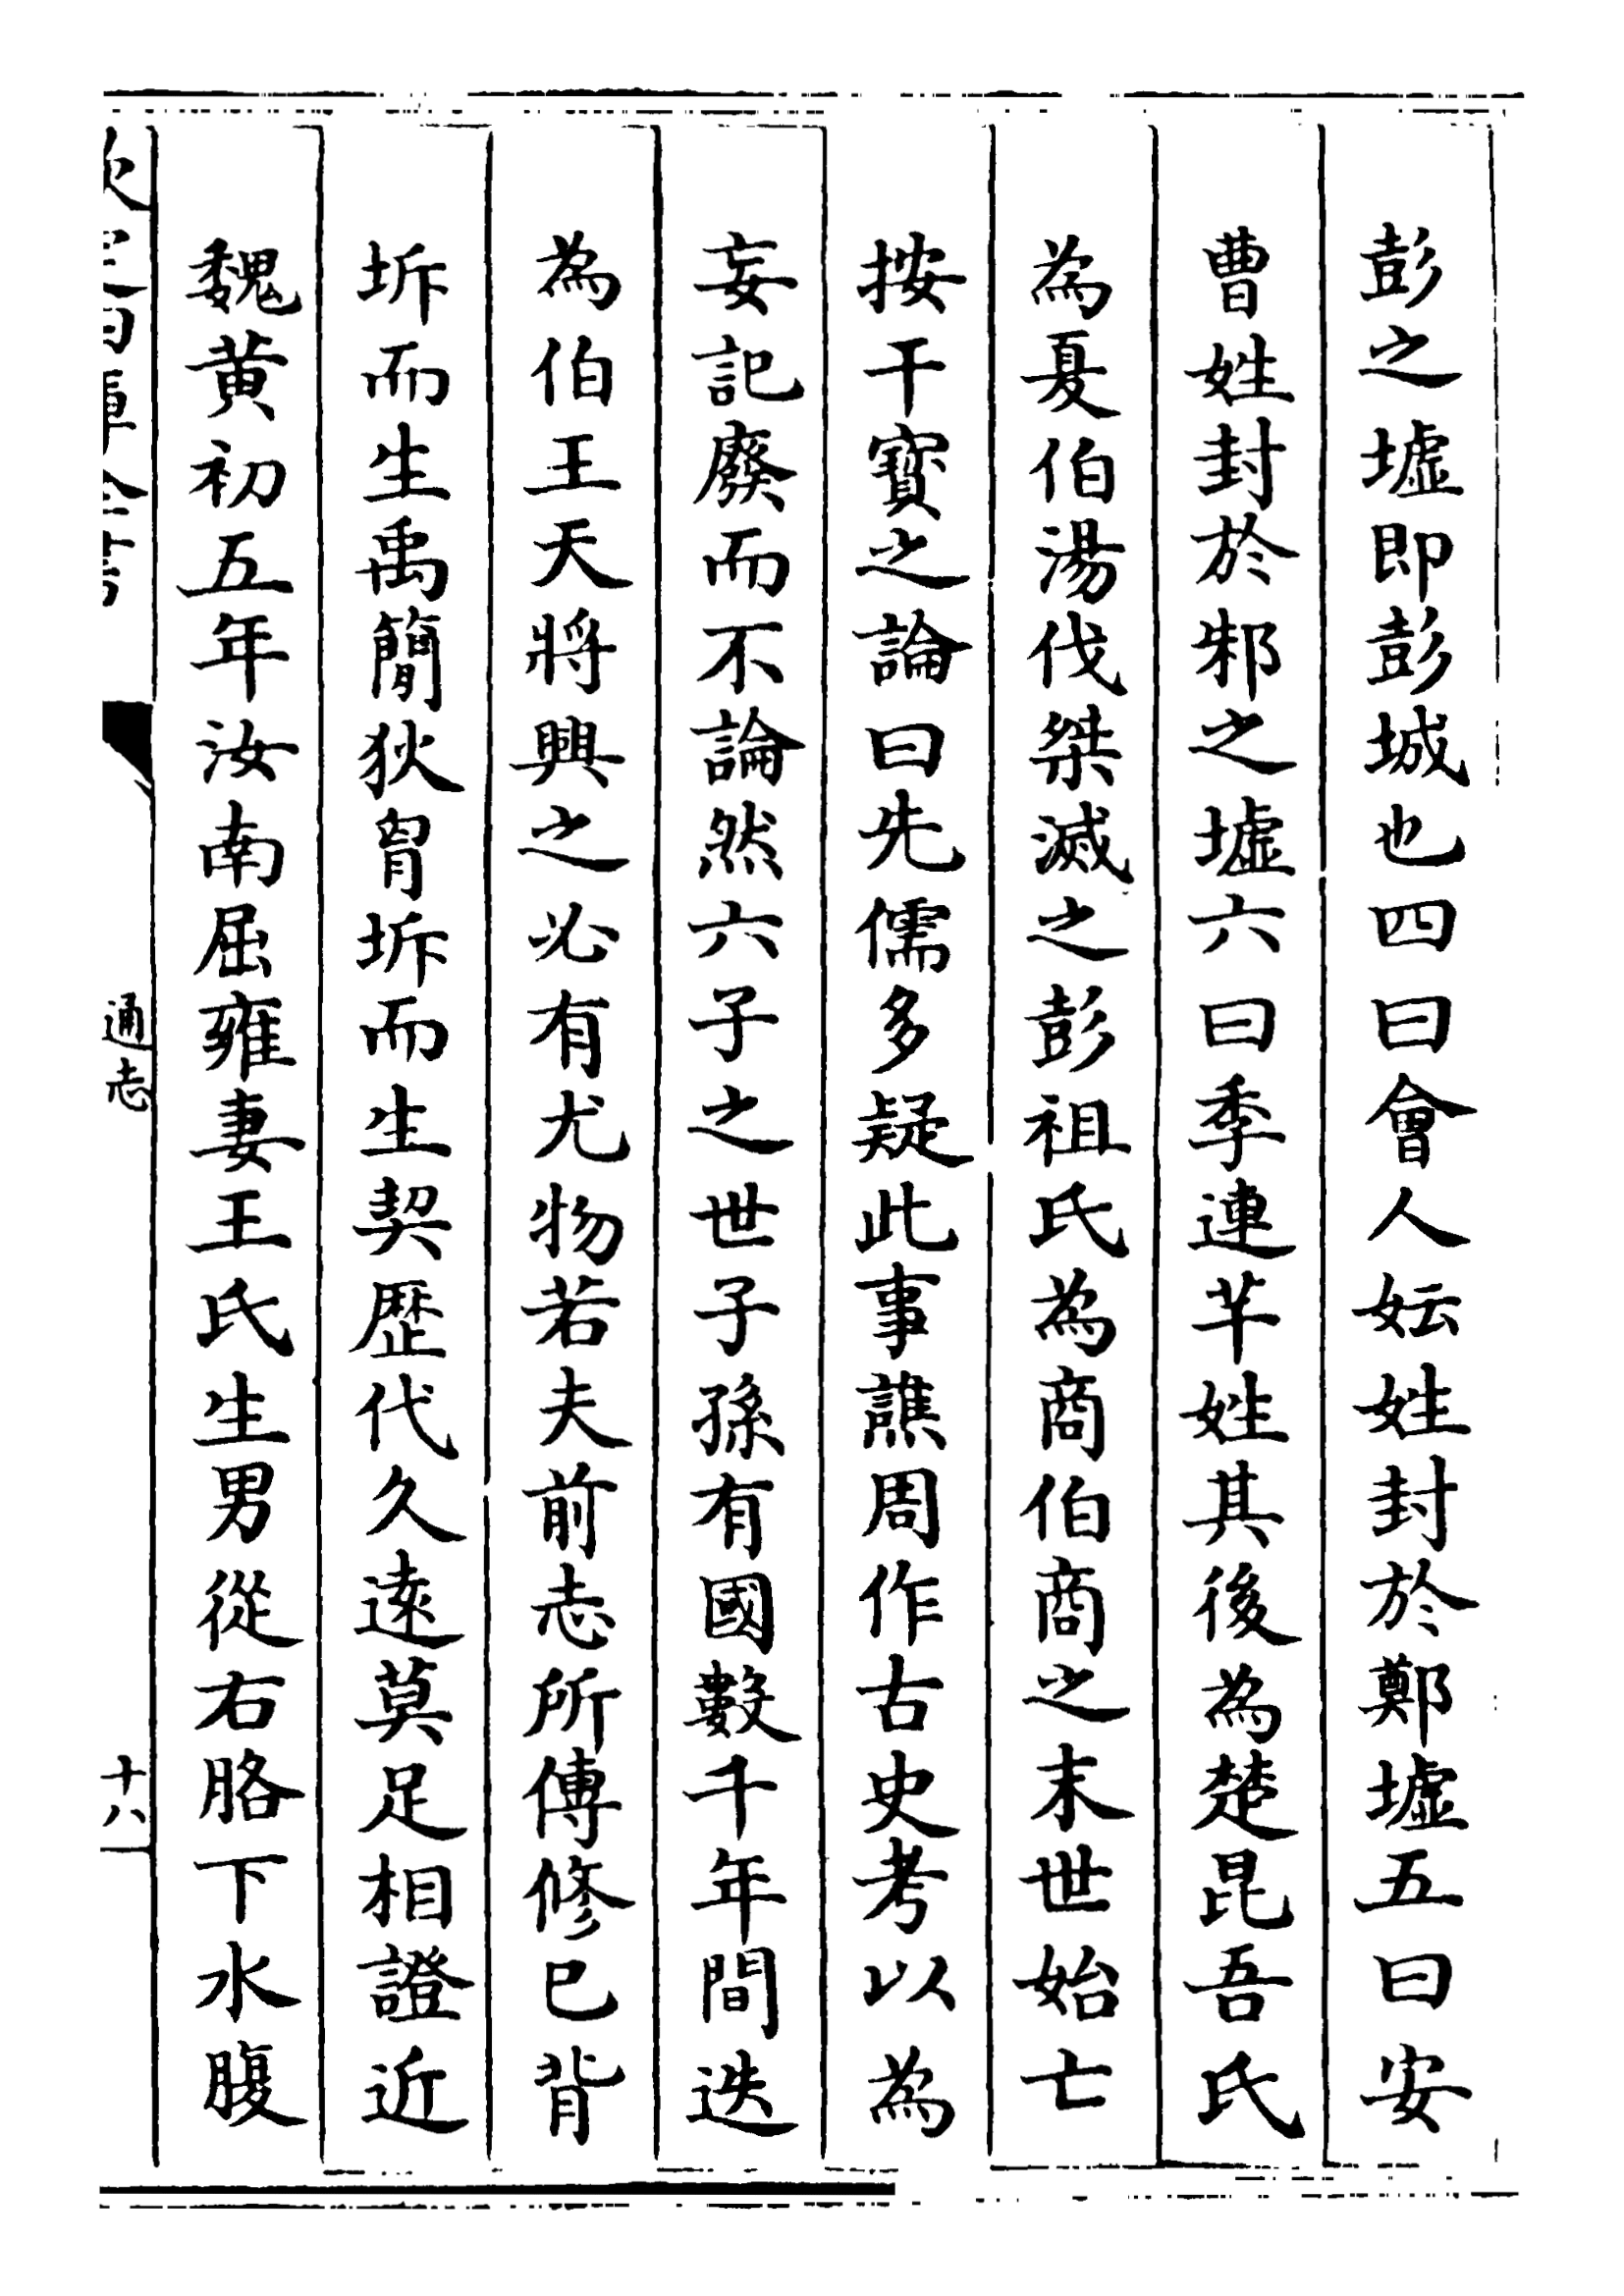 彭之墟即彭城也四曰會人妘姓封於鄭墟五曰安
曹姓封於邾之墟六曰季連芊姓其後為楚昆吾氏
為夏伯湯伐桀滅之彭祖氏為商伯商之末世始亡
按干寳之論曰先儒多疑此事譙周作古史考以為
妄記廢而不論然六子之世子孫有國數千年間迭
為伯王天將興之必有尤物若夫前志所傳修巳背
坼而生禹簡狄胷坼而生契歴代久逺莫足相證近
魏黄初五年汝南屈雍妻王氏生男從右胳下水腹
欽定四庫全書
通志
十八